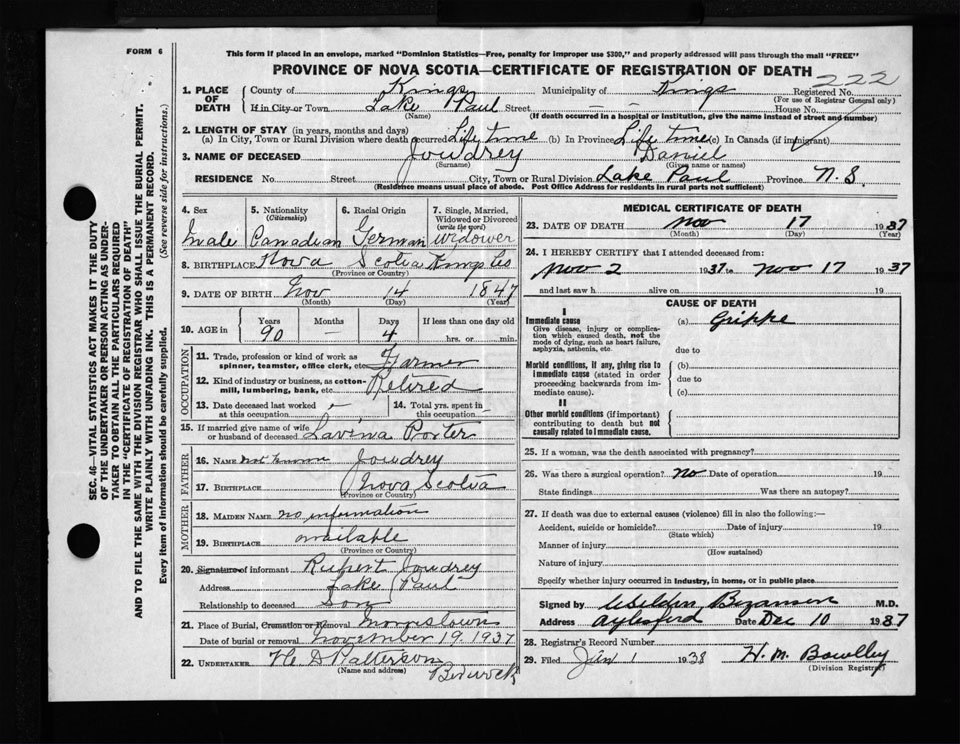 FORM 6
This form if placed in an envelope, marked "Dominion Statistics—Free, penalty for improper use $300," and properly addressed will pass through the mail "FREE"
PROVINCE OF NOVA SCOTIA—CERTIFICATE OF REGISTRATION OF DEATH
222
1. PLACE OF DEATH County of Kings Municipality of Kings Registered No.
(For use of Registrar General only)
If in City or Town Lake Paul Street — — House No.
(Name) (If death occurred in a hospital or institution, give the name instead of street and number)
2. LENGTH OF STAY (in years, months and days)
(a) In City, Town or Rural Division where death occurred Life time (b) In Province Life time (c) In Canada (if immigrant)
3. NAME OF DECEASED Joudrey Daniel
(Surname) (Given name or names)
RESIDENCE No. Street City, Town or Rural Division Lake Paul Province N.S.
(Residence means usual place of abode. Post Office Address for residents in rural parts not sufficient)
4. Sex 5. Nationality (Citizenship) 6. Racial Origin 7. Single, Married, Widowed or Divorced (write the word)
Male Canadian German Widower
8. BIRTHPLACE Nova Scotia Kings Co
(Province or Country)
9. DATE OF BIRTH Nov 14 1847
(Month) (Day) (Year)
10. AGE in Years Months Days If less than one day old
90 — 4 hrs. or min.
OCCUPATION
11. Trade, profession or kind of work as spinner, teamster, office clerk, etc. Farmer
12. Kind of industry or business, as cotton-mill, lumbering, bank, etc. Retired
13. Date deceased last worked at this occupation — 14. Total yrs. spent in this occupation —
15. If married give name of wife or husband of deceased Lavinia Porter
FATHER
16. NAME not known Joudrey
17. BIRTHPLACE Nova Scotia
(Province or Country)
MOTHER
18. MAIDEN NAME no information
19. BIRTHPLACE available
(Province or Country)
20. Signature of informant Rupert Joudrey
Address Lake Paul
Relationship to deceased Son
21. Place of Burial, Cremation or Removal Morristown
Date of burial or removal November 19, 1937
22. UNDERTAKER D Patterson
(Name and address) Berwick
MEDICAL CERTIFICATE OF DEATH
23. DATE OF DEATH Nov 17 1937
(Month) (Day) (Year)
24. I HEREBY CERTIFY that I attended deceased from:
Nov 2 1937 to Nov 17 1937
and last saw h alive on 19
CAUSE OF DEATH
I
Immediate cause (a) Grippe
Give disease, injury or complication which caused death, not the mode of dying, such as heart failure, asphyxia, asthenia, etc. due to
Morbid conditions, if any, giving rise to immediate cause (stated in order proceeding backwards from immediate cause). (b)
due to
(c)
II
Other morbid conditions (if important) contributing to death but not causally related to immediate cause.
25. If a woman, was the death associated with pregnancy?
26. Was there a surgical operation? No Date of operation 19
State findings Was there an autopsy?
27. If death was due to external causes (violence) fill in also the following:—
Accident, suicide or homicide? Date of injury 19
(State which)
Manner of injury
(How sustained)
Nature of injury
Specify whether injury occurred in industry, in home, or in public place
Signed by Weldon Bezanson M.D.
Address Aylesford Date Dec 10 1937
28. Registrar's Record Number
29. Filed Jan 1 1938 H. M.
(Division Registrar)
SEC. 46—VITAL STATISTICS ACT MAKES IT THE DUTY
OF THE UNDERTAKER OR PERSON ACTING AS UNDER-
TAKER TO OBTAIN ALL THE PARTICULARS REQUIRED
IN THE "CERTIFICATE OF REGISTRATION OF DEATH"
AND TO FILE THE SAME WITH THE DIVISION REGISTRAR WHO SHALL ISSUE THE BURIAL PERMIT.
WRITE PLAINLY WITH UNFADING INK. THIS IS A PERMANENT RECORD.
Every item of information should be carefully supplied. (See reverse side for instructions.)